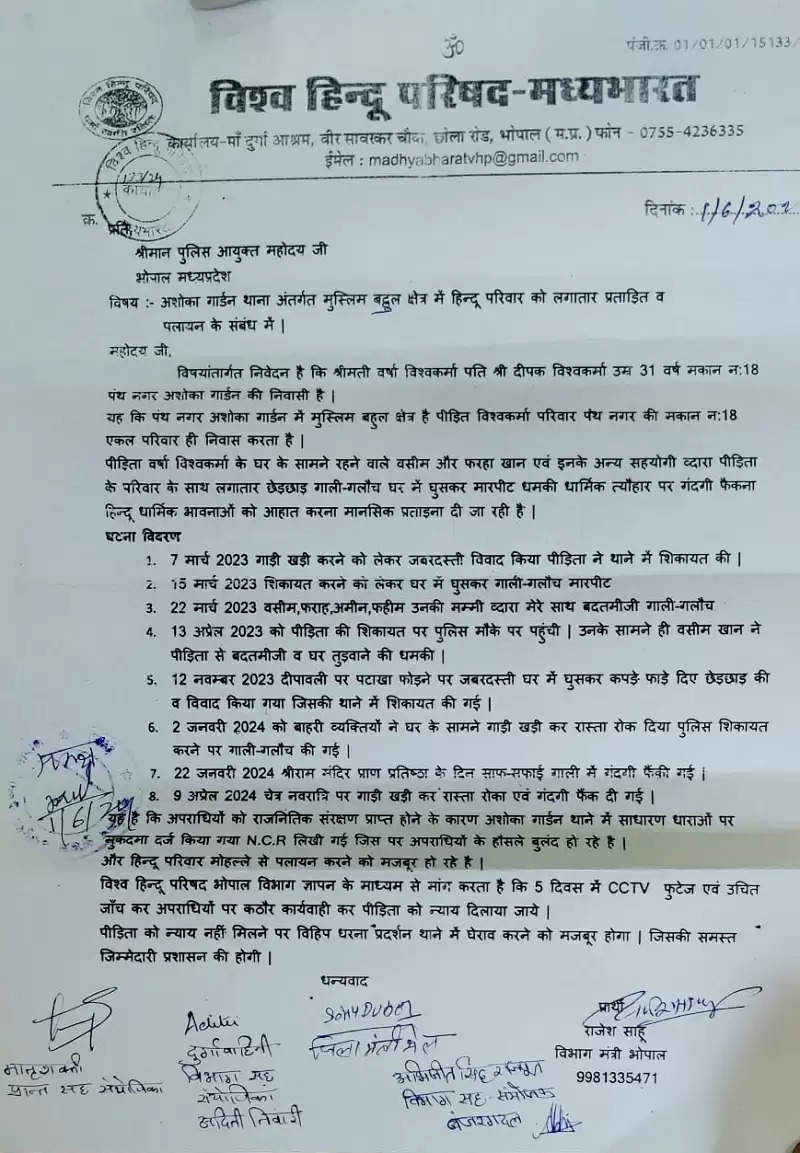 ॐ
पंजी.क्र. 01/01/01/15133/
विश्व हिन्दू परिषद-मध्यभारत
कार्यालय-माँ दुर्गा आश्रम, वीर सावरकर चौक, छोला रोड, भोपाल (म.प्र.) फोन - 0755-4236335
ईमेल : madhyabharatvhp@gmail.com
123/24
दिनांक : 1/6/202
क्र.
प्रति,
श्रीमान पुलिस आयुक्त महोदय जी
भोपाल मध्यप्रदेश
विषय :- अशोका गार्डन थाना अंतर्गत मुस्लिम बहुल क्षेत्र में हिन्दू परिवार को लगातार प्रताड़ित व
पलायन के संबंध में |
महोदय जी,
विषयांतार्गत निवेदन है कि श्रीमती वर्षा विश्वकर्मा पति श्री दीपक विश्वकर्मा उम्र 31 वर्ष मकान न:18
पंथ नगर अशोका गार्डन की निवासी है |
यह कि पंथ नगर अशोका गार्डन में मुस्लिम बहुल क्षेत्र है पीड़ित विश्वकर्मा परिवार पंथ नगर की मकान न:18
एकल परिवार ही निवास करता है |
पीड़िता वर्षा विश्वकर्मा के घर के सामने रहने वाले वसीम और फरहा खान एवं इनके अन्य सहयोगी व्दारा पीड़िता
के परिवार के साथ लगातार छेड़छाड़ गाली-गलौच घर में घुसकर मारपीट धमकी धार्मिक त्यौहार पर गंदगी फैकना
हिन्दू धार्मिक भावनाओं को आहात करना मानसिक प्रताड़ना दी जा रही है |
घटना विवरण
1. 7 मार्च 2023 गाड़ी खड़ी करने को लेकर जबरदस्ती विवाद किया पीड़िता ने थाने में शिकायत की |
2. 15 मार्च 2023 शिकायत करने को लेकर घर में घुसकर गाली-गलौच मारपीट
3. 22 मार्च 2023 वसीम,फराह,अमीन,फहीम उनकी मम्मी व्दारा मेरे साथ बदतमीजी गाली-गलौच
4. 13 अप्रेल 2023 को पीड़िता की शिकायत पर पुलिस मौके पर पहुंची | उनके सामने ही वसीम खान ने
पीड़िता से बदतमीजी व घर तुड़वाने की धमकी |
5. 12 नवम्बर 2023 दीपावली पर पटाखा फोड़ने पर जबरदस्ती घर में घुसकर कपड़े फाड़े दिए छेड़छाड़ की
व विवाद किया गया जिसकी थाने में शिकायत की गई |
6. 2 जनवरी 2024 को बाहरी व्यक्तियों ने घर के सामने गाड़ी खड़ी कर रास्ता रोक दिया पुलिस शिकायत
करने पर गाली-गलौच की गई |
7. 22 जनवरी 2024 श्रीराम मंदिर प्राण प्रतिष्ठा के दिन साफ-सफाई गाली में गंदगी फैंकी गई |
8. 9 अप्रेल 2024 चेत्र नवरात्रि पर गाड़ी खड़ी कर रास्ता रोका एवं गंदगी फैंक दी गई |
यह है कि अपराधियों को राजनितिक संरक्षण प्राप्त होने के कारण अशोका गार्डन थाने में साधारण धाराओं पर
मुकदमा दर्ज किया गया N.C.R लिखी गई जिस पर अपराधियों के हौसले बुलंद हो रहे है |
और हिन्दू परिवार मोहल्ले से पलायन करने को मजबूर हो रहे है |
विश्व हिन्दू परिषद भोपाल विभाग ज्ञापन के माध्यम से मांग करता है कि 5 दिवस में CCTV फुटेज एवं उचित
जाँच कर अपराधियों पर कठौर कार्यवाही कर पीड़िता को न्याय दिलाया जाये |
पीड़िता को न्याय नहीं मिलने पर विहिप धरना प्रदर्शन थाने में घेराव करने को मजबूर होगा | जिसकी समस्त
जिम्मेदारी प्रशासन की होगी |
1/6/20
धन्यवाद
प्रार्थी
राजेश साहू
विभाग मंत्री भोपाल
9981335471
मातृशक्ती
प्रान्त सह संयोजिका
Aditi
दुर्गावाहिनी
विभाग सह
संयोजिका
अदिती तिवारी
जिला मंत्री
अभिजीत सिंह राजपूत
विभाग सह-संयोजक
बजरंगदल